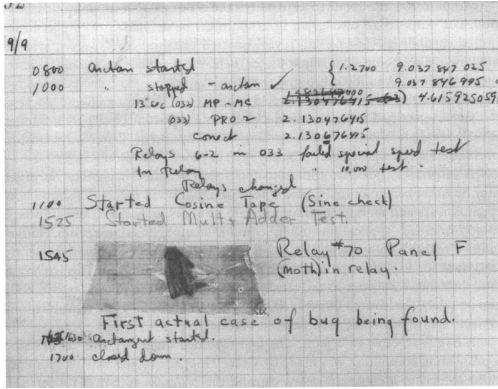 9/9
0800 Antan started { 1.2700 9.037 847 025
1000 " stopped - antan ✓ 9.037 846 995
13"uc (033) MP - MC 2.130476415 4.615925059
(033) PRO 2 2.130476415
conect 2.130676415
Relays 6-2 in 033 failed special speed test
In Relay " 10,000 test.
Relays changed
1100 Started Cosine Tape (Sine check)
1525 Started Mult + Adder Test.
1545 Relay #70 Panel F
(moth) in relay.
First actual case of bug being found.
1630 antangent started.
1700 closed down.